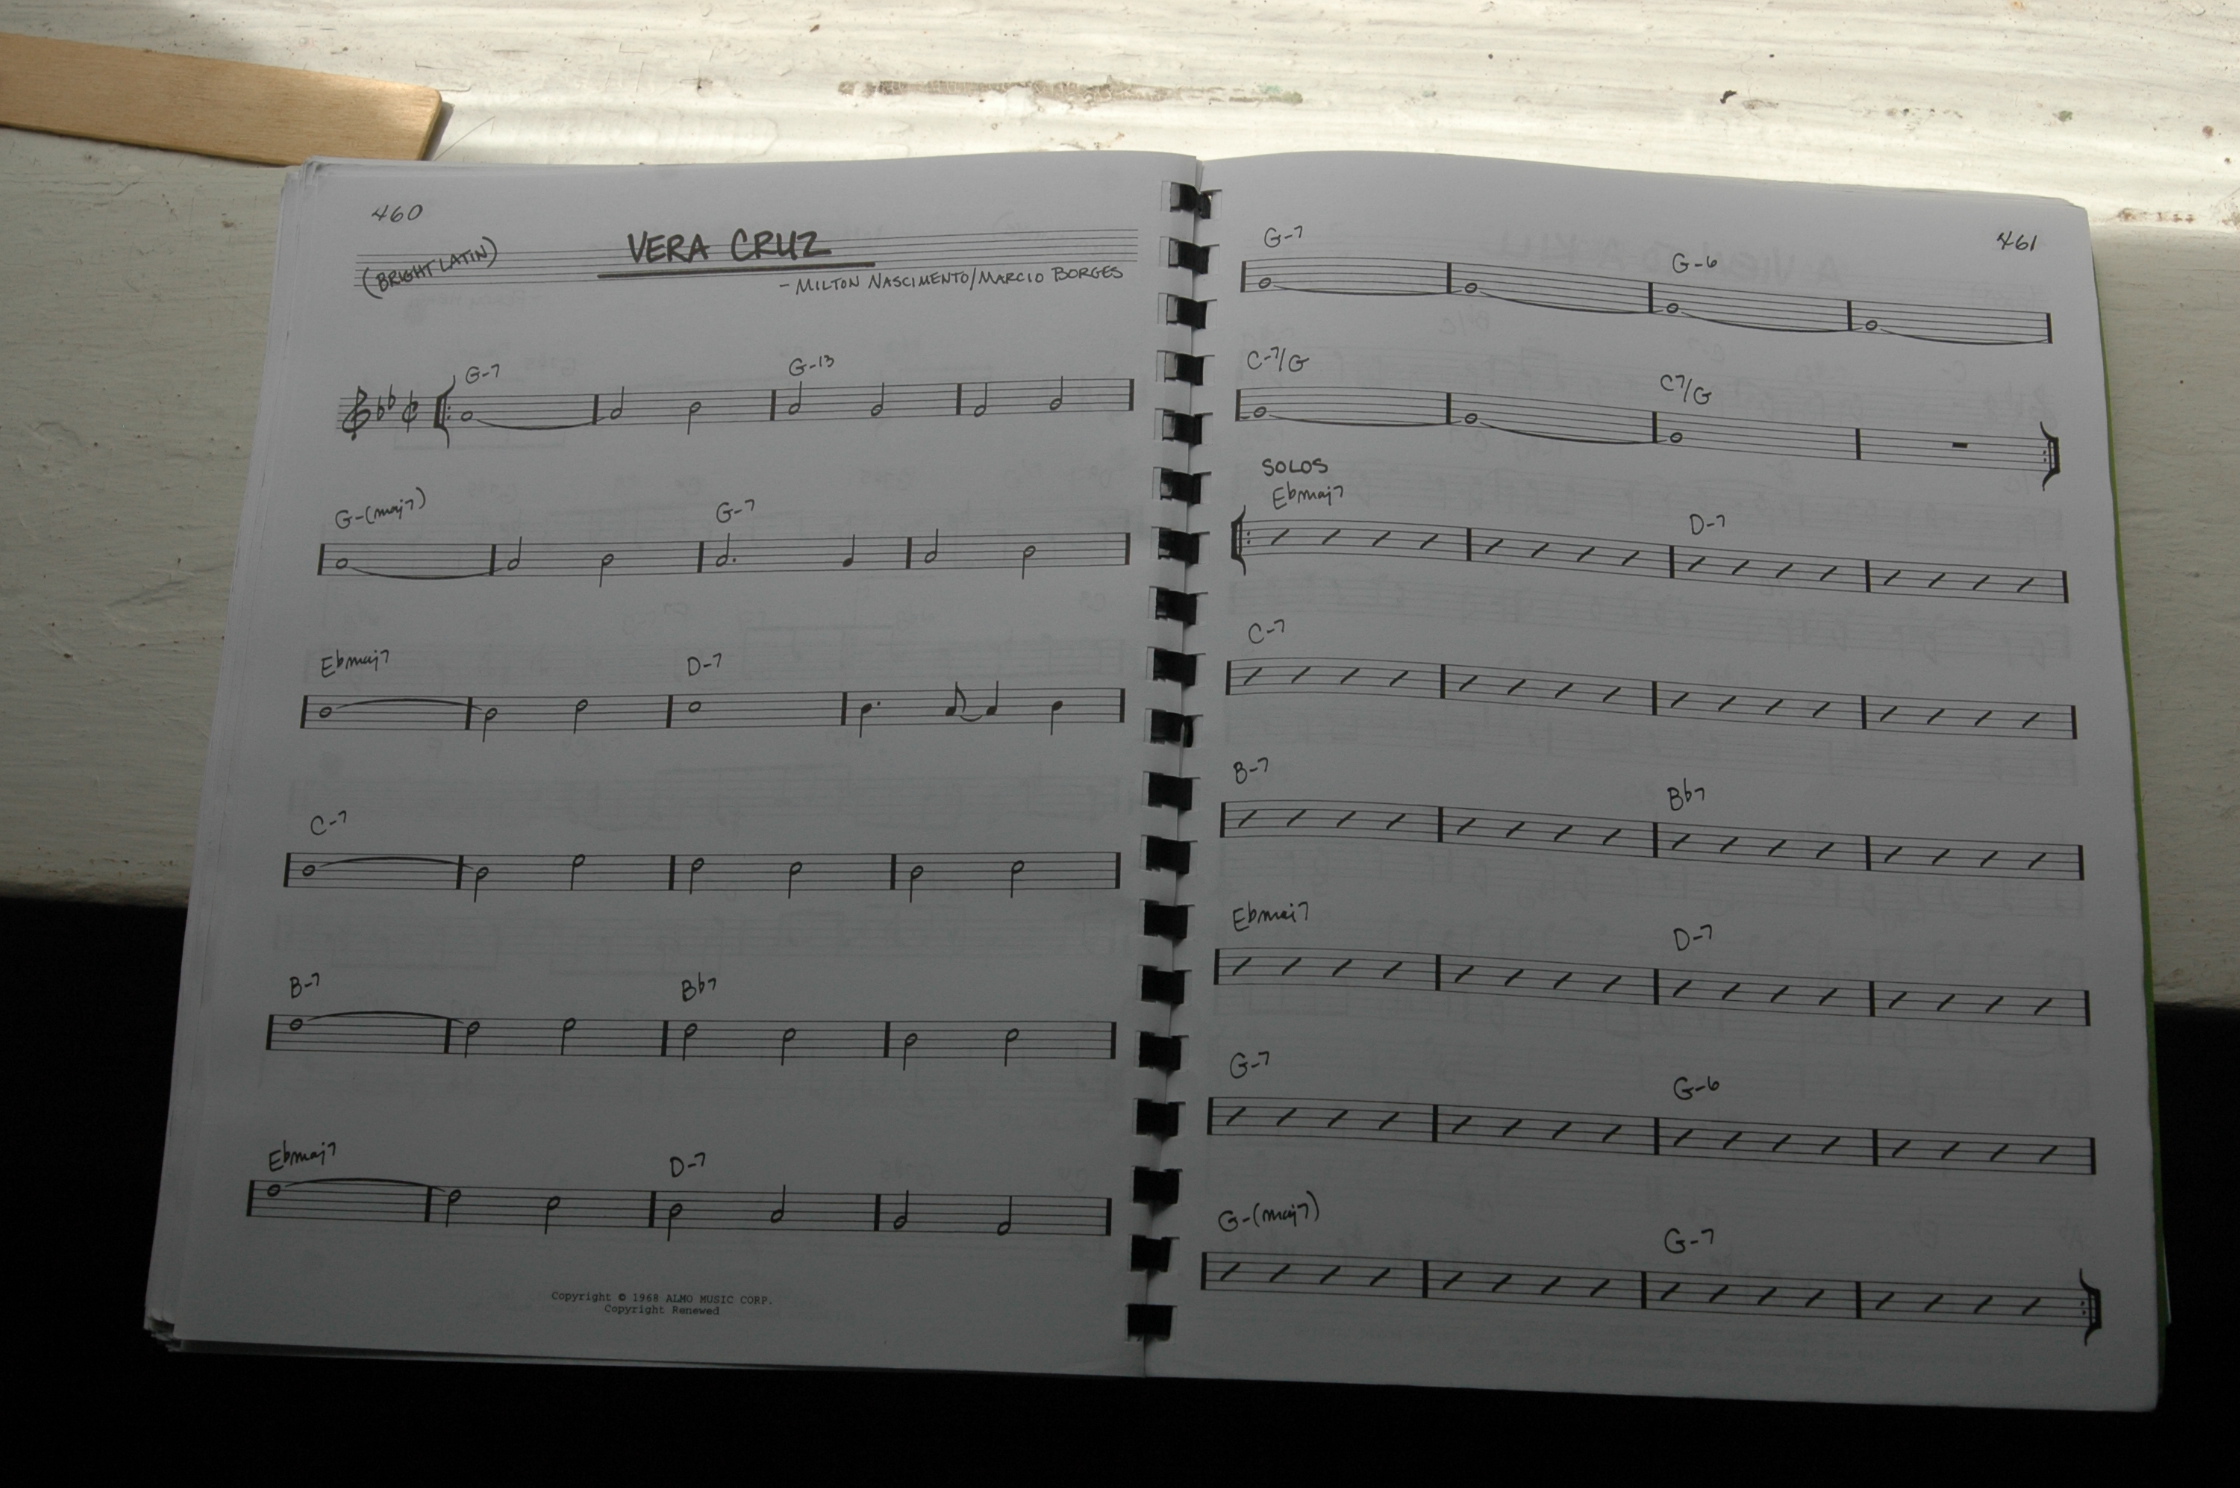 460
VERA CRUZ
(BRIGHT LATIN)
- MILTON NASCIMENTO/MARCIO BORGES
G-7 G-13
G-(maj7) G-7
Ebmaj7 D-7
C-7
B-7 Bb7
Ebmaj7 D-7
Copyright © 1968 ALMO MUSIC CORP.
Copyright Renewed
461
G-7 G-6
C-7/G C7/G
SOLOS
Ebmaj7 D-7
C-7
B-7 Bb7
Ebmaj7 D-7
G-7 G-6
G-(maj7) G-7